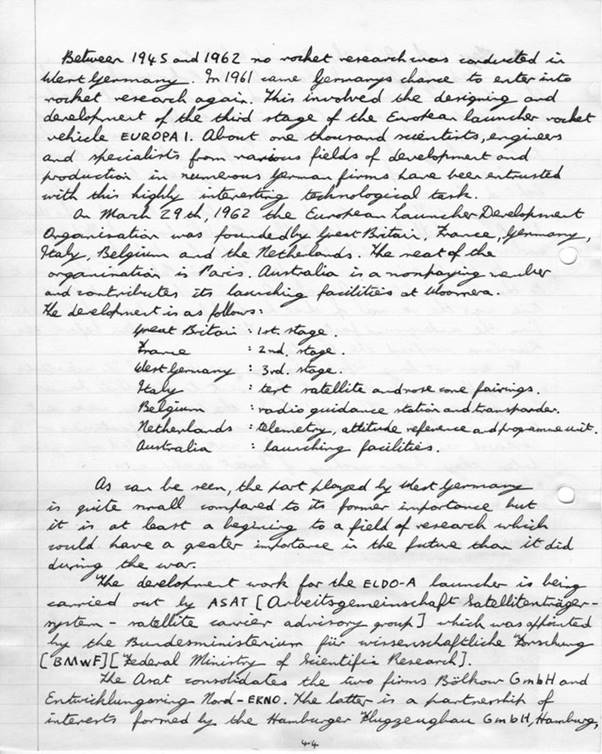 Between 1945 and 1962 no rocket research was conducted in
West Germany. In 1961 came Germanys chance to enter into
rocket research again. This involved the designing and
development of the third stage of the European launcher rocket
vehicle EUROPA 1. About one thousand scientists, engineers
and specialists from various fields of development and
production in numerous German firms have been entrusted
with this highly interesting technological task.
On March 29th, 1962 the European Launcher Development
Organisation was founded by Great Britain, France, Germany,
Italy, Belgium and the Netherlands. The seat of the
organisation is Paris. Australia is a nonpaying member
and contributes its launching facilities at Woomera.
The development is as follows:
Great Britain : 1st. stage.
France : 2nd. stage.
West Germany : 3rd. stage.
Italy : test satellite and nose cone fairings.
Belgium : radio guidance station and transponder.
Netherlands : telemetry, attitude reference and programme unit.
Australia : launching facilities.
As can be seen, the part played by West Germany
is quite small compared to its former importance but
it is at least a begining to a field of research which
could have a greater importance in the future than it did
during the war.
The development work for the ELDO-A launcher is being
carried out by ASAT [Arbeitsgemeinschaft Satellitenträger-
system - satellite carrier advisory group] which was appointed
by the Bundesministerium für wissenschaftliche Forschung
['BMwF][Federal Ministry of Scientific Research].
The Asat consolidates the two firms Bölkow GmbH and
Entwicklungsring Nord - ERNO. The latter is a partnership of
interests formed by the Hamburger Flugzeugbau GmbH, Hamburg,
44